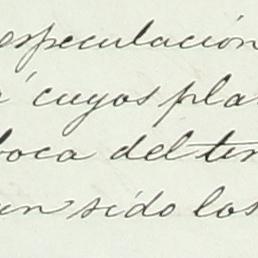 especulación
á cuyos pla
boca del ter
un sido los